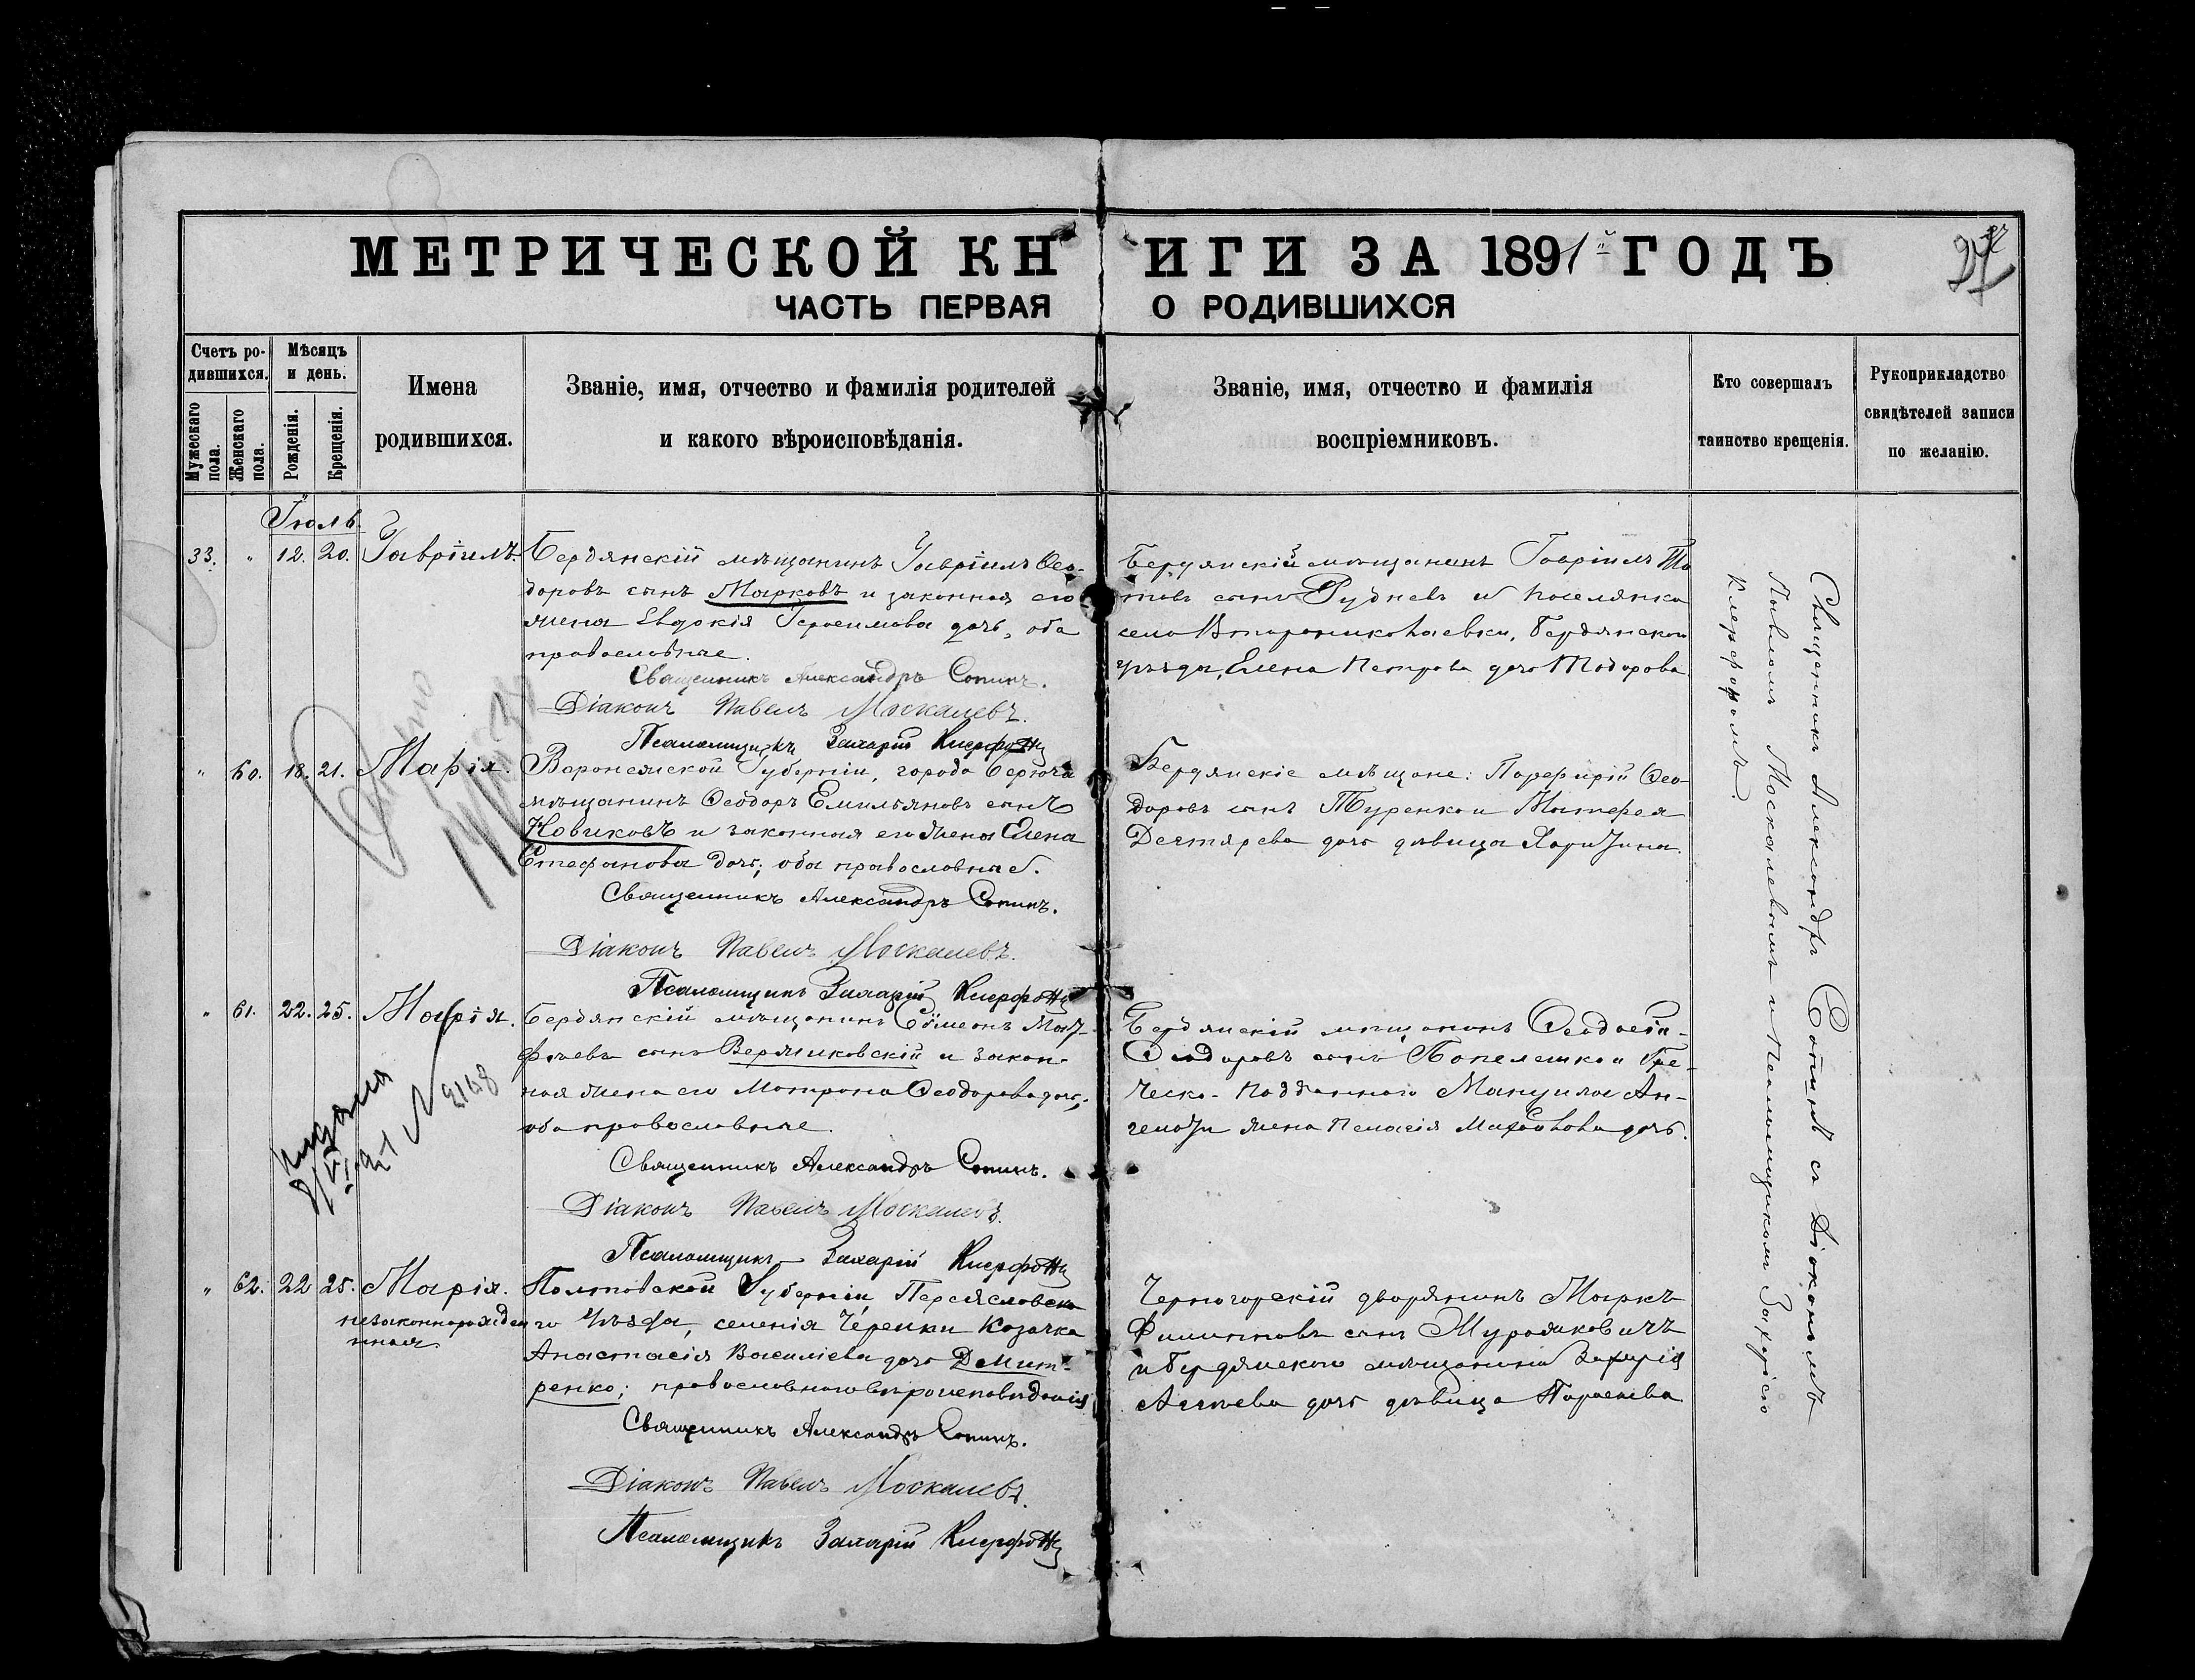 МЕТРИЧЕСКОЙ КНИГИ ЗА 1891й ГОДЪ
ЧАСТЬ ПЕРВАЯ О РОДИВШИХСЯ
Счетъ родившихся.
Мужескаго пола.
Женскаго пола.
Мѣсяцъ и день.
Рожденія.
Крещенія.
Имена
родившихся.
Званіе, имя, отчество и фамилія родителей
и какого вѣроисповѣданія.
Званіе, имя, отчество и фамилія
воспріемниковъ.
Кто совершалъ
таинство крещенія.
Рукоприкладство
свидѣтелей записи
по желанію.
Іюль
33. " 12. 20. Гавріилъ.
Бердянскій мѣщанинъ Гавріилъ Ѳео-
доровъ сынъ Марковъ и законная его
жена Евдокія Герасимова дочь, оба
православные.
Священникъ Александръ Сопинъ.
Діаконъ Павелъ Москалевъ.
Псаломщикъ Захарій
Бердянскій мѣщанинъ Гавріилъ
сынъ Рудневъ и поселянка
села Второниколаевки, Бердянскаго
уѣзда, Елена Петрова дочь Тодорова
" 60. 18. 21. Марія.
Воронежской Губерніи, города Бирюча
мѣщанинъ Ѳеодоръ Емильяновъ сынъ
Новиковъ и законная его жена Елена
Стефанова дочь; оба православные.
Священникъ Александръ Сопинъ.
Діаконъ Павелъ Москалевъ.
Псаломщикъ Захарій
Бердянскіе мѣщане: Порфирій Ѳео-
доровъ сынъ Туренко и
дочь дѣвица
" 61. 22. 25. Марія.
Бердянскій мѣщанинъ Сѵмеонъ Мат-
фѣевъ сынъ Вержиковскій и закон-
ная жена его Матрона Ѳеодорова дочь;
оба православные.
Священникъ Александръ Сопинъ.
Діаконъ Павелъ Москалевъ.
Псаломщикъ Захарій
Бердянскій мѣщанинъ Ѳеодосій
Ѳеодоровъ сынъ Попелешко и Гре-
ческо-подданнаго Мануила Ан-
жена Пелагія дочь.
№ 2168
" 62. 22 25. Марія.
незаконнорожден
ная
Полтавской Губерніи Переясловска
го Уѣзда, селенія Черенки Козачка
Анастасія Василіева дочь Дмит-
ренко; православного вѣроисповѣданія
Священникъ Александръ Сопинъ.
Діаконъ Павелъ Москалевъ.
Псаломщикъ Захарій
Черногорскій дворянинъ Маркъ
Филипповъ сынъ
и Бердянскаго мѣщанина Захарія
дочь дѣвица Параскева
Священникъ Александръ Сопинъ съ Діакономъ
Павломъ Москалевымъ и Псаломщикомъ Захаріею